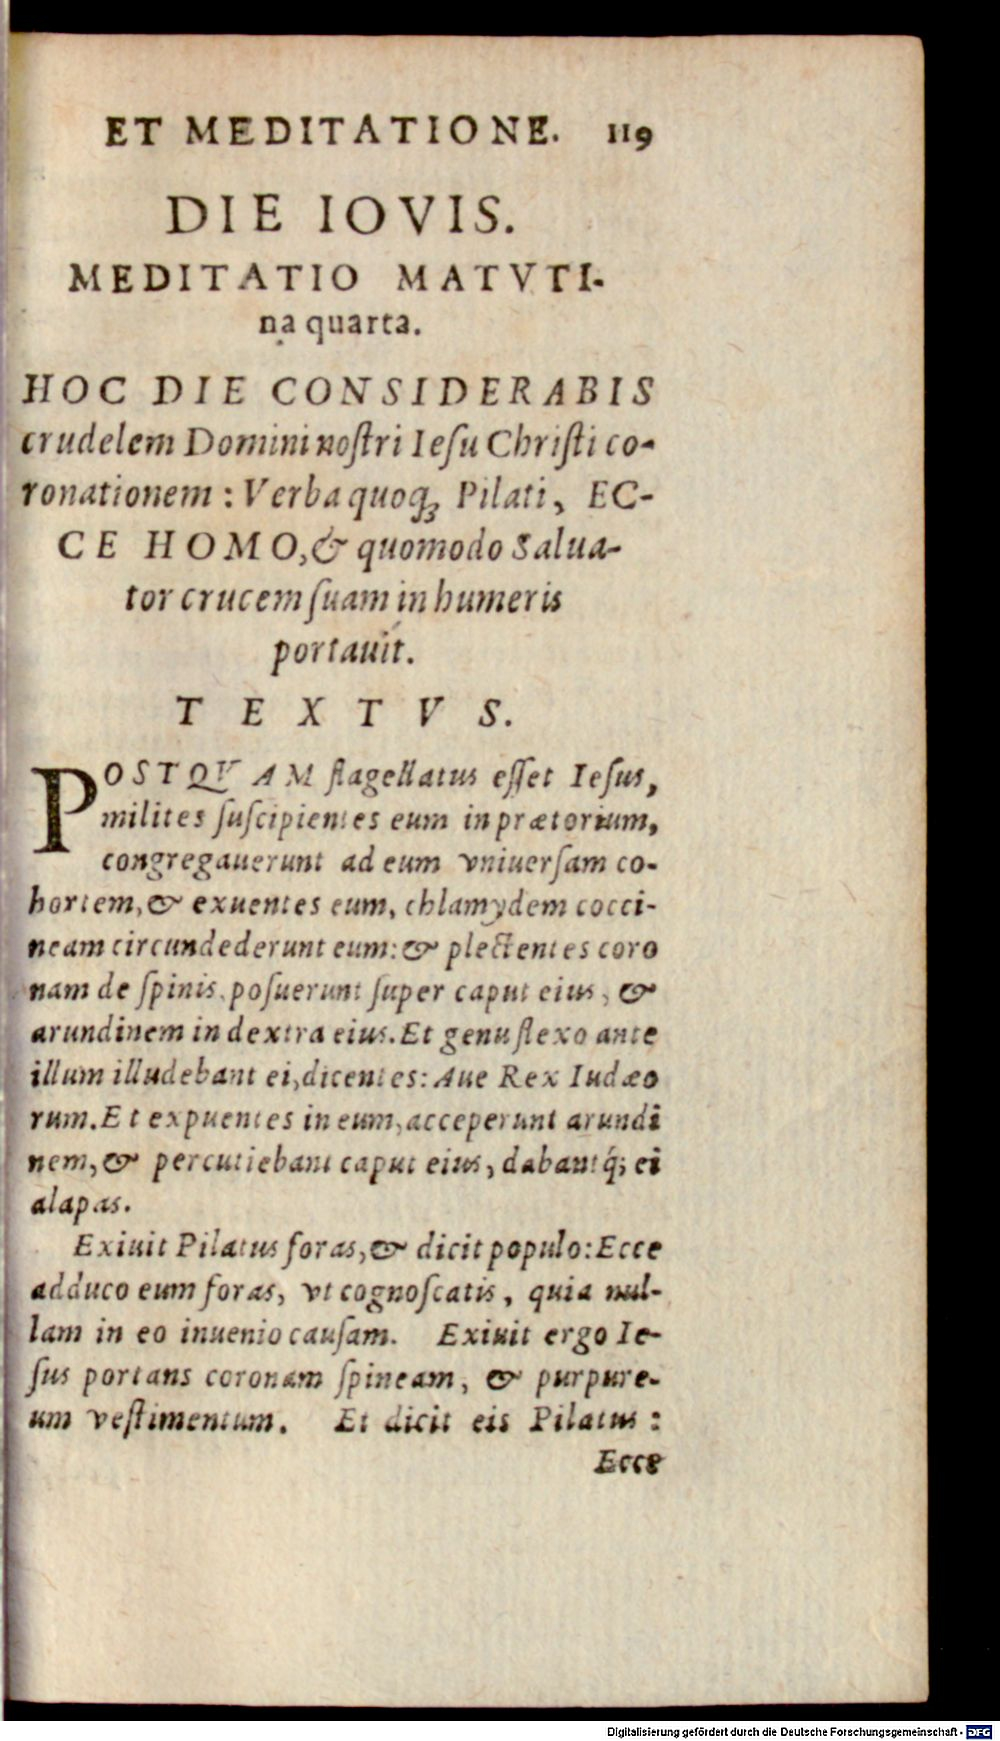 ET MEDITATIONE. 119
DIE IOVIS.
MEDITATIO MATVTI-
na quarta.
HOC DIE CONSIDERABIS
crudelem Domini noſtri Ieſu Chriſti co-
ronationem : Verba quoq; Pilati, EC-
CE HOMO, & quomodo Salua-
tor crucem ſuam in humeris
portauit.
TEXTVS.
POSTQVAM flagellatus eſſet Ieſus,
milites ſuſcipientes eum in prætorium,
congregauerunt ad eum vniuerſam co-
hortem, & exuentes eum, chlamydem cocci-
neam circundederunt eum: & plectentes coro
nam de ſpinis, poſuerunt ſuper caput eius, &
arundinem in dextra eius. Et genu flexo ante
illum illudebant ei, dicentes: Aue Rex Iudæo
rum. Et expuentes in eum, acceperunt arundi
nem, & percutiebant caput eius, dabantq́; ei
alapas.
Exiuit Pilatus foras, & dicit populo: Ecce
adduco eum foras, vt cognoſcatis, quia nul-
lam in eo inuenio cauſam. Exiuit ergo Ie-
ſus portans coronam ſpineam, & purpure-
um veſtimentum. Et dicit eis Pilatus :
Ecce
Digitalisierung gefördert durch die Deutsche Forschungsgemeinschaft - DFG